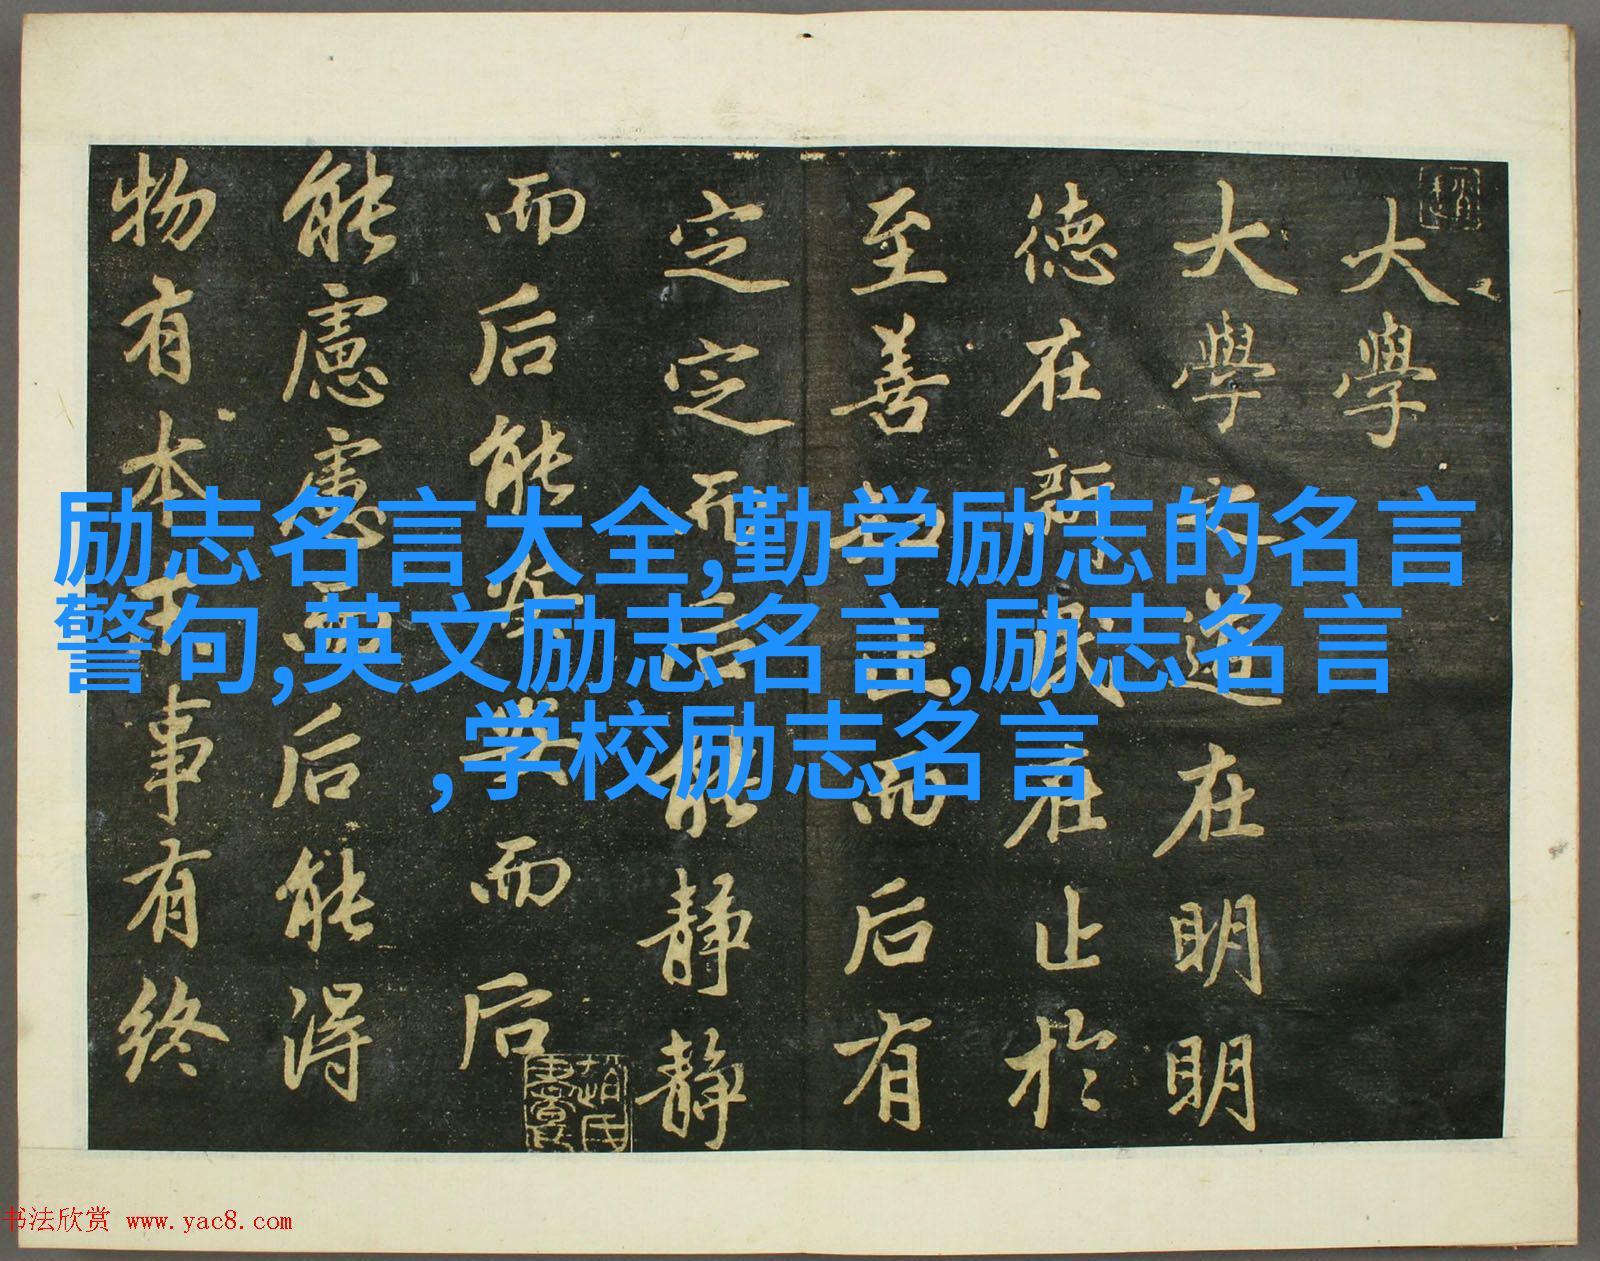 大學
大學之道在明明
德在新民在止於
至善知止而后有
定定而后能靜靜
而后能安安而后
能慮慮而后能得
物有本末事有終
励志名言大全,勤学励志的名言
警句,英文励志名言,励志名言
,学校励志名言
书法欣赏 www.yac8.com